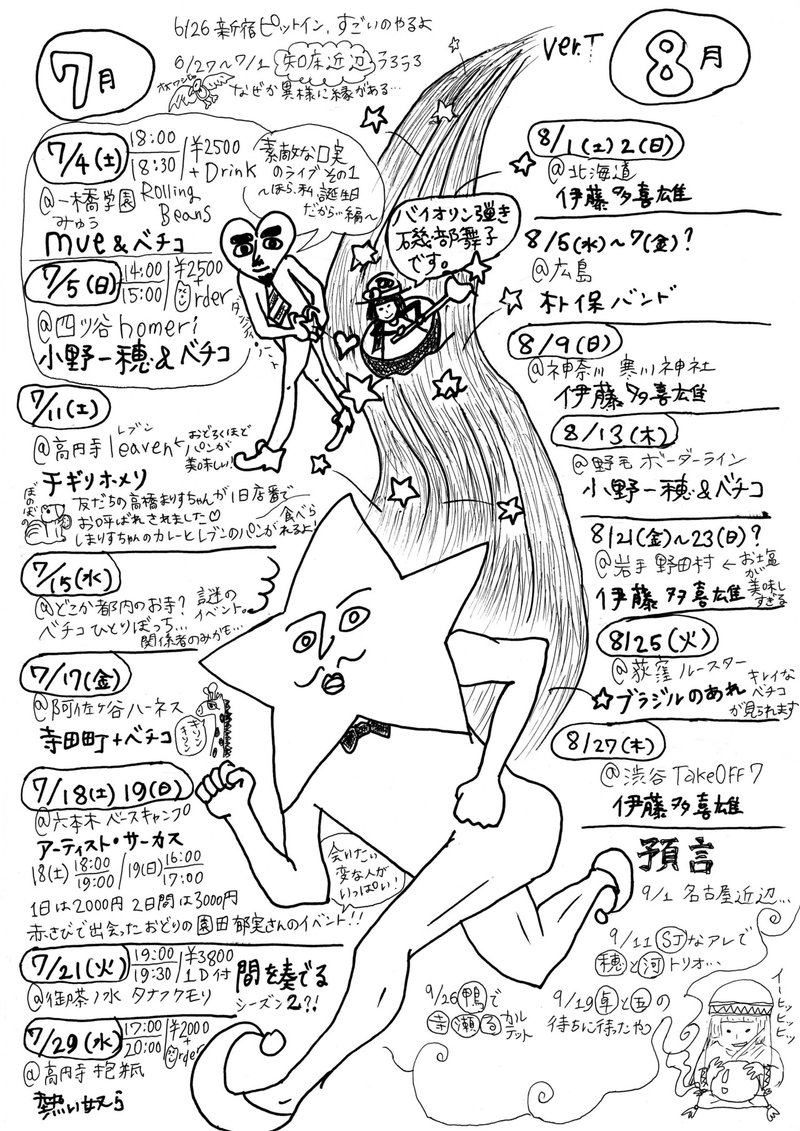 6/26 新宿ピットイン、すごいのやるよ
6/27〜7/1 知床近辺 うろうろ
なぜか異様に縁がある…
ver.T
7月
8月
7/4(土) 18:00/18:30 ¥2500+Drink
@一橋学園 Rolling Beans
みゅう
mue&ベチコ
素敵な口実
のライブその1
〜ほら、私、誕生日
だから…編〜
7/5(日) 14:00/15:00 ¥2500+order
@四ツ谷 homeri
小野一穂&ベチコ
バイオリン弾き
磯部舞子
です。
7/11(土)
レブン
@高円寺 leaven ← おどろくほど
パンが
美味しい!
チギリホメリ
ぼのぼの
友だちの高橋まりすちゃんが1日店番で
お呼ばれされました♡
しまりすちゃんのカレーとレブンのパンが食べられるよ!
7/15(水)
@どこか都内のお寺? 謎の
イベント。
ベチコひとりぼっち…
関係者のみかも…
7/17(金)
@阿佐ヶ谷ハーネス
寺田町+ベチコ
キリンキリン
7/18(土) 19(日)
@六本木 ベースキャンプ
アーティスト・サーカス
18(土) 18:00/19:00 / 19(日) 16:00/17:00
1日は2000円 2日間は3000円
赤さびで出会ったおどりの園田郁実さんのイベント!!
会いたい
変な人が
いっぱい!
7/21(火) 19:00/19:30 ¥3800 1D付
@御茶ノ水 タナフクモリ
間を奏でる
シーズン2?!
7/29(水) 17:00/20:00 ¥2000+order
@高円寺 抱瓶
熱い奴ら
8/1(土)2(日)
@北海道
伊藤多喜雄
8/5(水)〜7(金)?
@広島
朴保バンド
8/9(日)
@神奈川 寒川神社
伊藤多喜雄
8/13(木)
@野毛 ボーダーライン
小野一穂&ベチコ
8/21(金)〜23(日)?
@岩手 野田村 ← お塩
が
美味し
すぎる
伊藤多喜雄
8/25(火)
@荻窪 ルースター
ブラジルのあれ
キレイな
ベチコ
が見られます
8/27(木)
@渋谷 TakeOFF7
伊藤多喜雄
預言
9/1 名古屋近辺…
9/11 SJなアレで
穂と河トリオ…
9/19 卓と
待ちに待ったやつ
9/26 鴨で
寺瀬る カルテット
イーヒッヒッヒッ